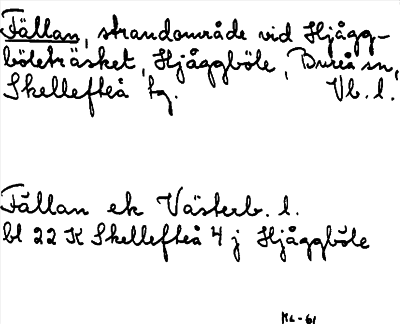 Fällan, strandområde vid Hjågg-
böleträsket, Hjåggböle, Bureå sn,
Skellefteå tg. Vb. l.
Fällan ek Västerb. l.
bl 22 K Skellefteå 4 j Hjåggböle
KL-61